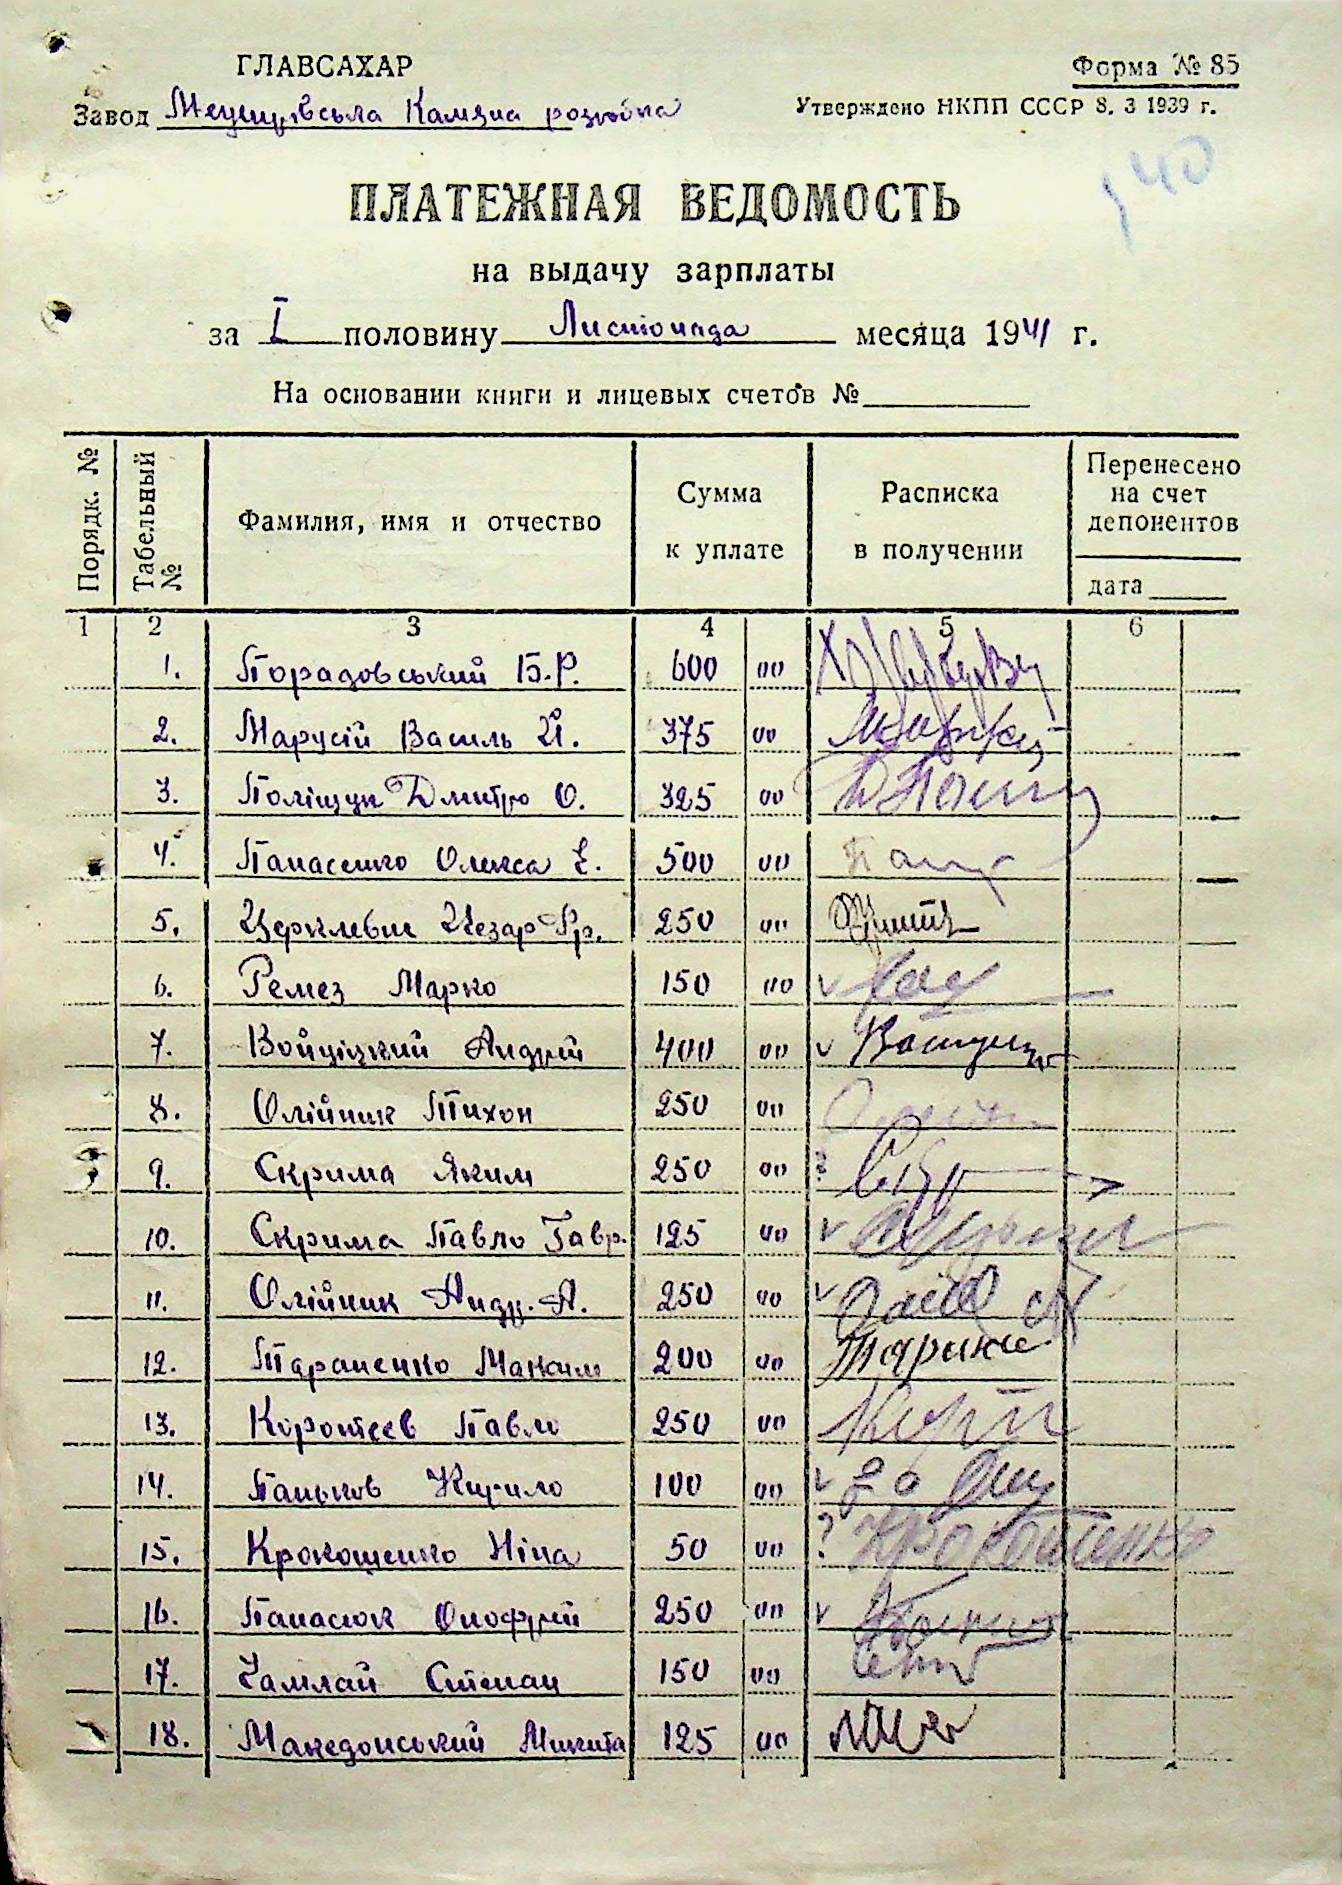 ГЛАВСАХАР
Форма № 85
Завод Камяна
Утверждено НКПП СССР 8. 3 1939 г.
140
ПЛАТЕЖНАЯ ВЕДОМОСТЬ
на выдачу зарплаты
за I половину Листопада месяца 1941 г.
На основании книги и лицевых счетов №
Порядк. № Табельный № Фамилия, имя и отчество Сумма к уплате Расписка в получении Перенесено на счет депонентов дата
1 2 3 4 5 6
1. Порадовський Б.Р. 600 00
2. Марусій Василь Й. 375 00
3. Поліщук Дмитро О. 325 00
4. Панасенко Олекса Є. 500 00
5. Цезар Гр. 250 00
6. Ремез Марко 150 00 v
7. Войціцкий Андрій 400 00 v
8. Олійник Тихон 250 00
9. Скрима Яким 250 00 ?
10. Скрима Павло Гавр. 125 00 v
11. Олійник Андр. А. 250 00 v
12. Тараненко Максим 200 00
13. Коротеев Павло 250 00
14. Паньков Кирило 100 00 v
15. Крокошенко Ніна 50 00 ?
16. Панасюк Онофрій 250 00 v
17. Чамлай Степан 150 00
18. Македонський Микита 125 00